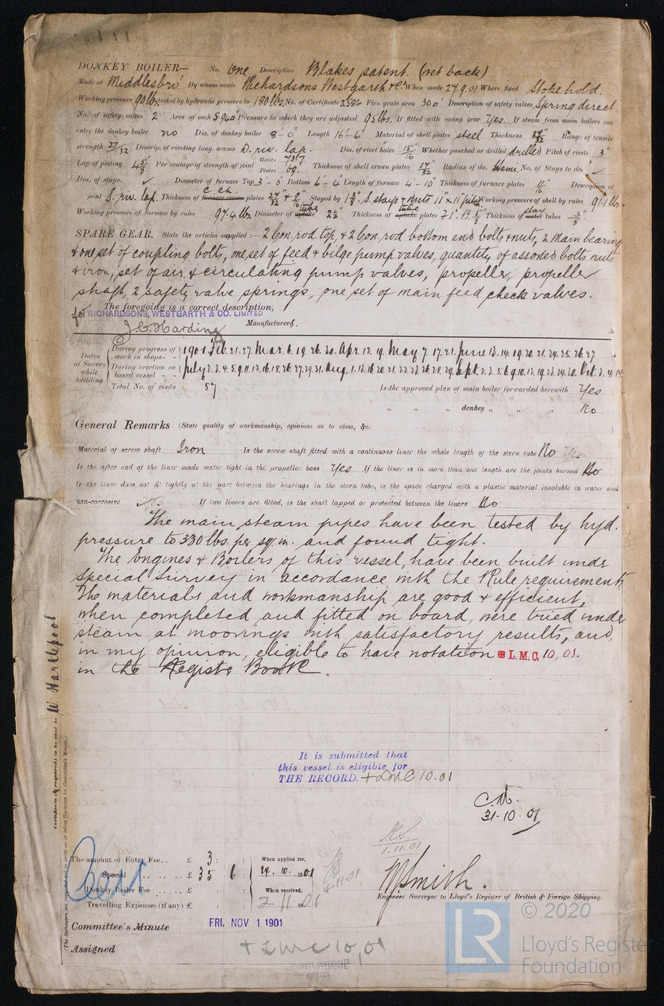 DONKEY BOILER— No. One Description Blakes patent (wet back)
Made at Middlesbro' By whom made Richardsons Westgarth & Co When made 27.9.01 Where fixed Stokehold
Working pressure 90 lbs tested by hydraulic pressure to 180 lbs No. of Certificate Fire grate area 30 Description of safety valves Spring direct
No. of safety valves 2 Area of each 5.94 Pressure to which they are adjusted 95 lbs. If fitted with easing gear Yes. If steam from main boilers can
enter the donkey boiler no Dia. of donkey boiler 8'-0" Length 16'-6" Material of shell plates steel Thickness 27/32 Range of tensile
strength Descrip. of riveting long. seams D. riv. lap. Dia. of rivet holes 15/16 Whether punched or drilled drilled Pitch of rivets 3"
Lap of plating Per centage of strength of joint Rivets Plates 69 Thickness of shell crown plates 17/32 Radius of do. Hemi. No. of Stays to do. ✓
Dia. of stays. ✓ Diameter of furnace Top 3'-0" Bottom 6'-4" Length of furnace 4'-10" Thickness of furnace plates Description of
joint S. riv. lap Thickness of plates Stayed by S. stays & nuts 11 x 11 pitch Working pressure of shell by rules
Working pressure of furnace by rules 97.4 lbs Diameter of tube Thickness of tube Thickness of stay tubes
SPARE GEAR. State the articles supplied:— 2 Con. rod top, & 2 Con. rod bottom end bolts & nuts, 2 Main bearing
& one set of coupling bolts, one set of feed & bilge pump valves, quantity of assorted bolts nuts
& iron, set of air, & circulating pump valves, propeller, propeller
shaft, 2 safety valve springs, one set of main feed check valves.
The foregoing is a correct description,
for RICHARDSONS, WESTGARTH & CO. LIMITED
J C Harding Manufacturers.
Dates of Survey while building
During progress of work in shops— 1901 Feb. 21. 27. Mar. 6. 19. 26. 30. Apr. 12. 19. May 7. 17. 21. June 13. 14. 19. 20. 21. 24. 25. 26. 27.
During erection on board vessel—
Total No. of visits 57 Is the approved plan of main boiler forwarded herewith Yes
" " " donkey " " " No
General Remarks (State quality of workmanship, opinions as to class, &c.
Material of screw shaft Iron Is the screw shaft fitted with a continuous liner the whole length of the stern tube No
Is the after end of the liner made water tight in the propeller boss Yes If the liner is in more than one length are the joints burned No
Is the liner does not fit tightly at the part between the bearings in the stern tube, is the space charged with a plastic material insoluble in water and
non-corrosive If two liners are fitted, is the shaft lapped or protected between the liners No
The main steam pipes have been tested by hyd.
pressure to 330 lbs. per sq. in. and found tight.
The Engines & Boilers of this vessel, have been built under
Special Survey in accordance with the Rule requirements
The materials and workmanship are good & efficient,
when completed and fitted on board, were tried under
steam at moorings with satisfactory results, and
in my opinion, eligible to have notation L.M.C. 10,01.
in the Register Book.
W Hartlepool
It is submitted that
this vessel is eligible for
THE RECORD. + LMC 10.01
31.10.01
1.11.01
The amount of Entry Fee.. £ 3 : When applied for,
Special £ 35 : 6 24.10.1901
Donkey Boiler Fee £ When received,
Travelling Expenses (if any) £ 2.11.01
Engineer Surveyor to Lloyd's Register of British & Foreign Shipping.
Committee's Minute FRI. NOV 1 1901
Assigned + LMC 10,01
LR © 2020
Lloyd's Register
Foundation